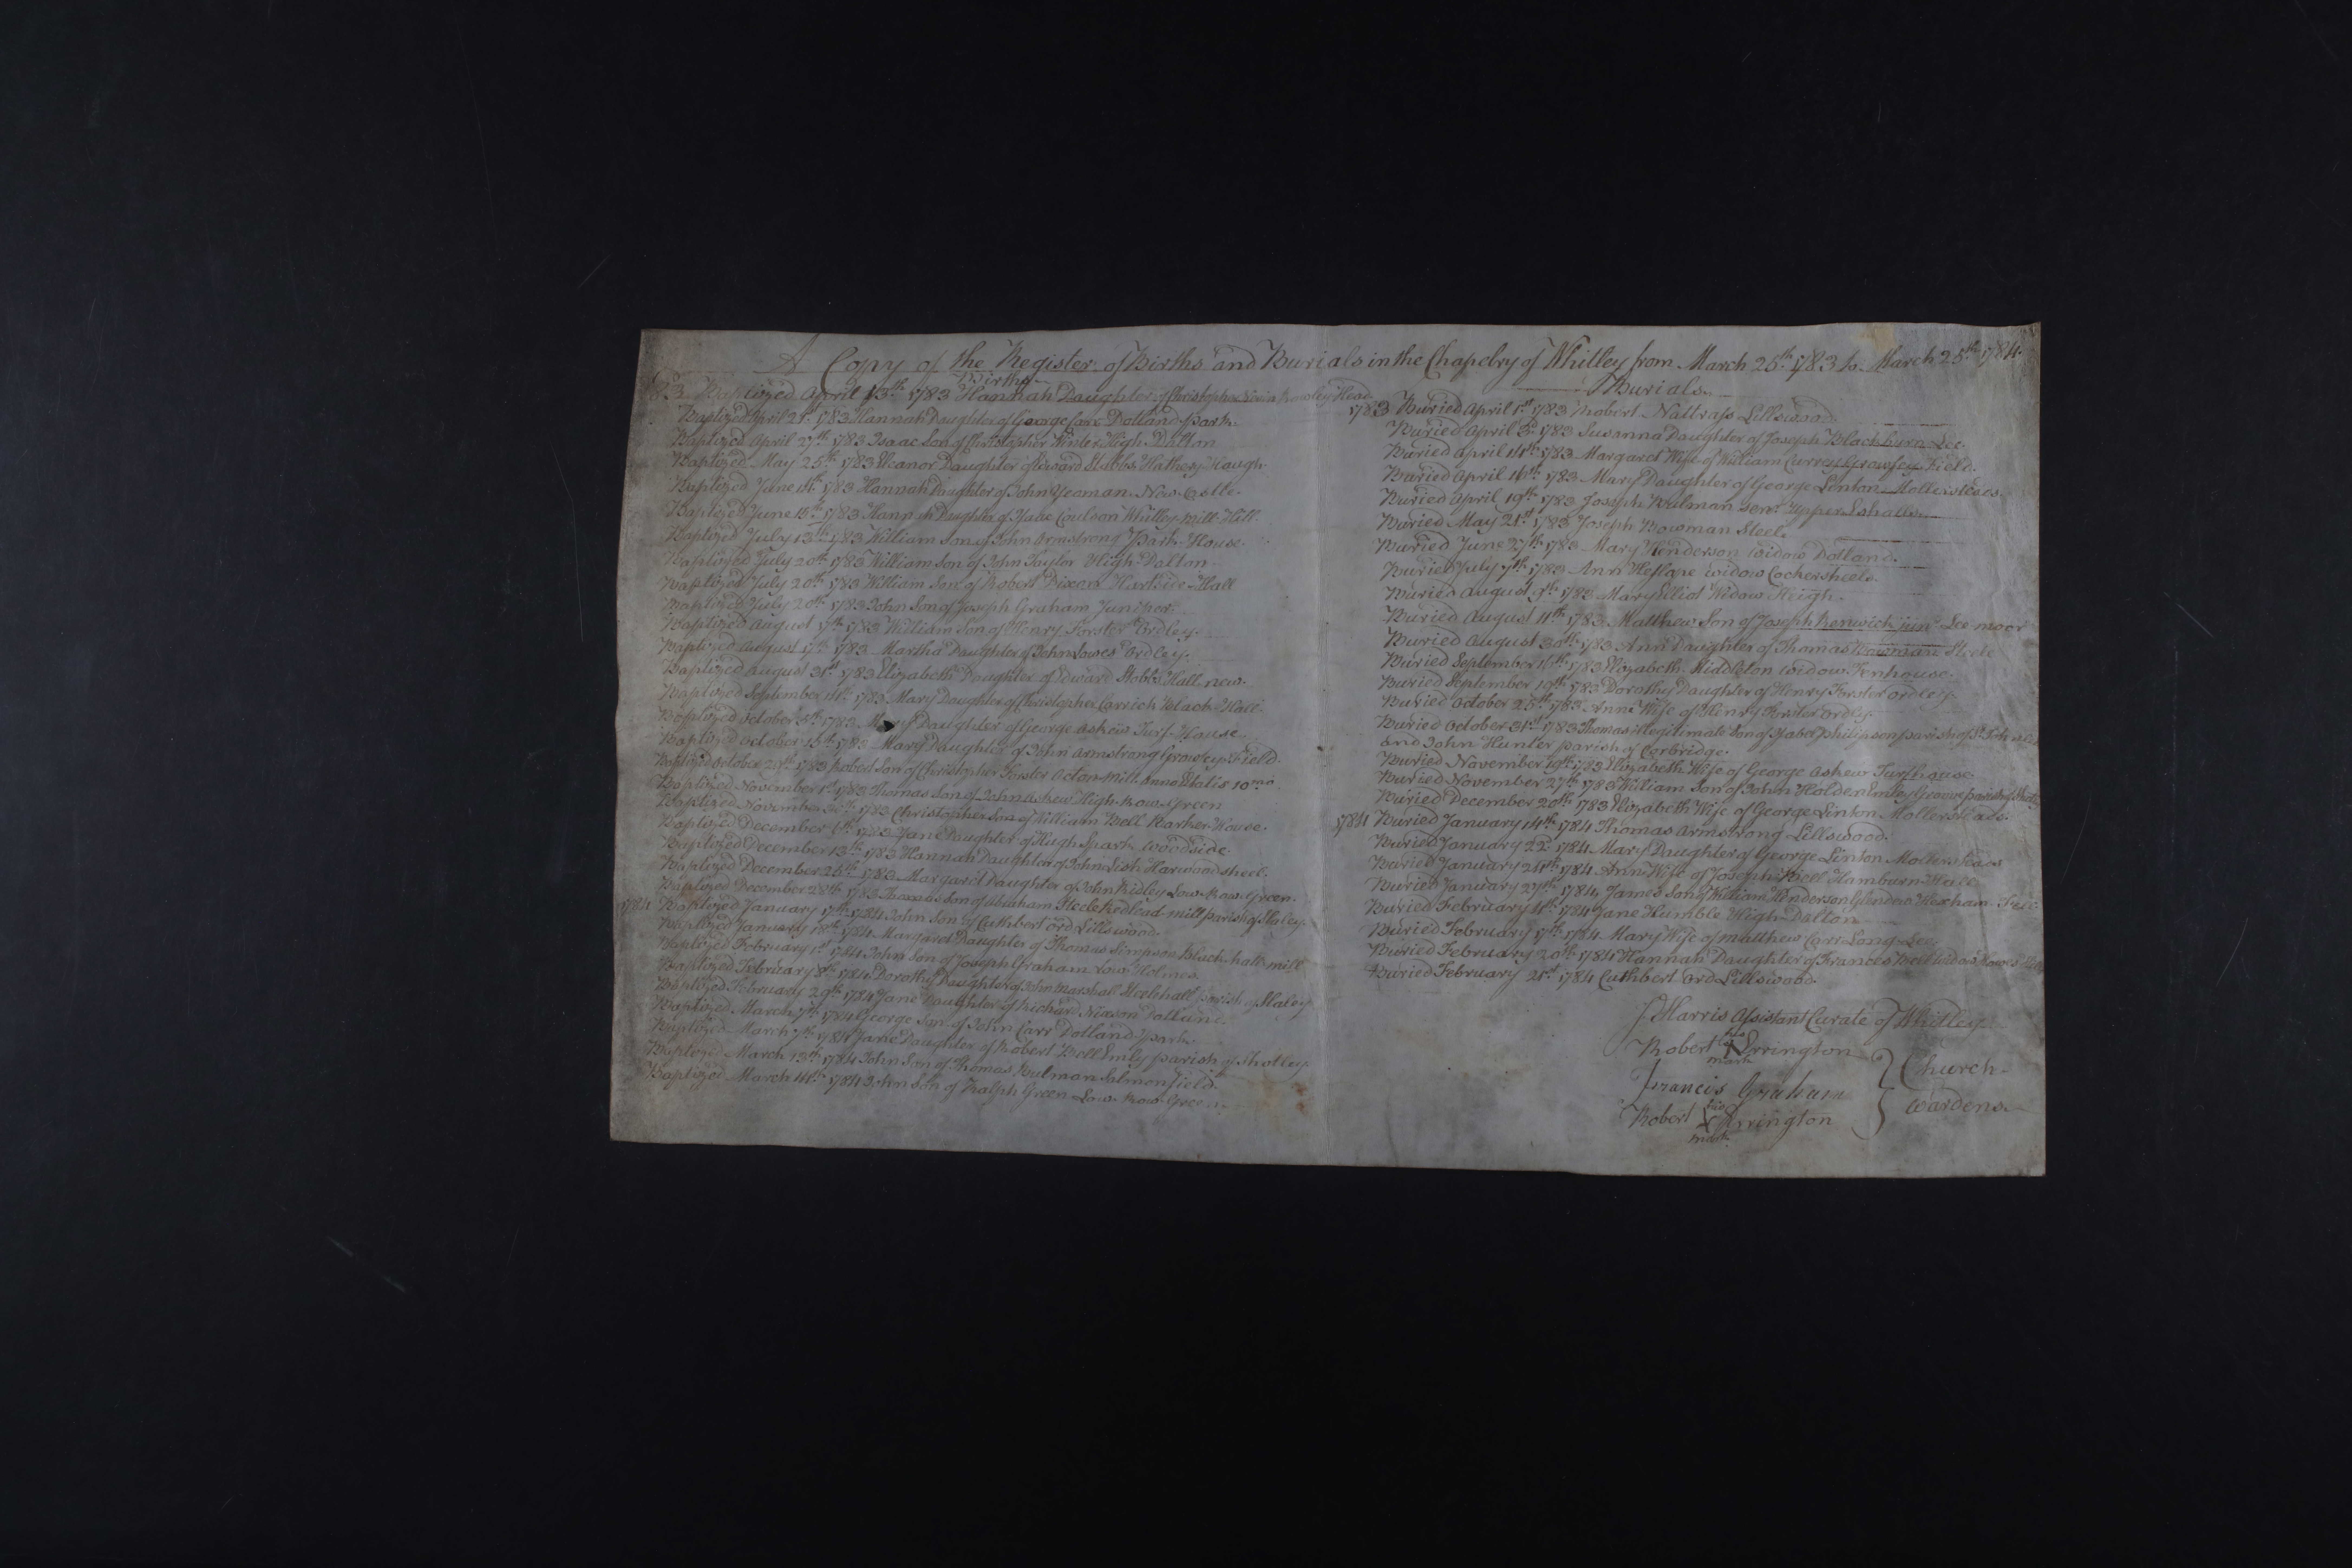 A Copy of the Register of Births and Burials in the Chapelry of Whitley from March 25th 1783 to March 25th 1784.
Births
Baptized April 13th 1783 Hannah Daughter of Christopher Head
Baptized April 21st 1783 Hannah Daughter of George Carr Dotland-park
Baptized April 27th 1783 Isaac Son of Christopher Winter High-Dalton
Baptized May 25th 1783 Eleanor Daughter of Edward Stobbs Hathery Haugh
Baptized June 1783 Hannah Daughter of John Yeoman New-Castle
Baptized June 15th 1783 Hannah Daughter of Isaac Coulson Whitley-Mill-Hill
Baptized July 13th 1783 William Son of John Armstrong Park-House
Baptized July 20th 1783 William Son of John Taylor High-Dalton
Baptized July 20th 1783 William Son of Robert Dixon Hartside-Hall
Baptized July 20th 1783 John Son of Joseph Graham Juniper
Baptized August 17th 1783 William Son of Henry Forster Ordley
Baptized August 17th 1783 Martha Daughter of John Lowes Ordley
Baptized August 31st 1783 Elizabeth Daughter of Edward Stobbs Hall-new
Baptized September 14th 1783 Mary Daughter of Christopher Carrick Black-Hall
Baptized October 5th 1783 Mary Daughter of George Askew Turf-House
Baptized October 15th 1783 Mary Daughter of John Armstrong Growey-Field
Baptized October 1783 Robert Son of Christopher Forster Acton-Mill Anno Ætatis 10mo
Baptized November 1st 1783 Thomas Son of John Askew High-Row-Green
Baptized November 30th 1783 Christopher Son of William Bell Barker-House
Baptized December 6th 1783 Jane Daughter of Hugh Spark Woodside
Baptized December 13th 1783 Hannah Daughter of John Lish Harwoodsheel
Baptized December 26th 1783 Margaret Daughter of John Ridley Low-Row-Green
Baptized December 28th 1783 Thomas Son of Abraham Steele Redlead-mill parish of Slaley
1784 Baptized January 17th 1784 John Son of Cuthbert Ord Lillswood
Baptized January 18th 1784 Margaret Daughter of Thomas Simpson Black-hall-mill
Baptized February 1st 1784 John Son of Joseph Graham Low Holmes
Baptized February 8th 1784 Dorothy Daughter of John Marshall Steelehall parish of Slaley
Baptized February 29th 1784 Jane Daughter of Richard Nixon Dotland
Baptized March 7th 1784 George Son of John Carr Dotland park
Baptized March 7th 1784 Jane Daughter of Robert Bell Emly parish of Shotley
Baptized March 13th 1784 John Son of Thomas Bulman Salmonfield
Baptized March 14th 1784 John Son of Ralph Green Low-Row-Green
Burials
1783 Buried April 1st 1783 Robert Nattrass Lillswood
Buried April 3d 1783 Susanna Daughter of Joseph Blackburn Lee
Buried April 14th 1783 Margaret Wife of William Currey Growfey Field
Buried April 16th 1783 Mary Daughter of George Linton Mollersteads
Buried April 19th 1783 Joseph Bulman senr Upper-Eshalls
Buried May 21st 1783 Joseph Bowman Steel
Buried June 27th 1783 Mary Henderson Widow Dotland
Buried July 7th 1783 Ann Heslape widow Cockersheels
Buried August 9th 1783 Mary Elliot Widow Steigh
Buried August 11th 1783 Matthew Son of Joseph Renwick junr Lee-moor
Buried August 30th 1783 Ann Daughter of Thomas Bowman Steele
Buried September 16th 1783 Elizabeth Middleton widow Finhouse
Buried September 19th 1783 Dorothy Daughter of Henry Forster Ordley
Buried October 25th 1783 Anne Wife of Henry Forster Ordley
Buried October 31st 1783 Thomas illegitimate Son of Isabel philipson parish of St. John Lee
and John Hunter parish of Corbridge
Buried November 19th 1783 Elizabeth Wife of George Askew Turfhouse
Buried November 27th 1783 William Son of John Holden Groove parish of
Buried December 20th 1783 Elizabeth Wife of George Linton Mollersteads
1784 Buried January 14th 1784 Thomas Armstrong Lillswood
Buried January 22 1784 Mary Daughter of George Linton Mollersteads
Buried January 24th 1784 Ann Wife of Joseph Bell Hamburn-Hall
Buried January 27th 1784 James Son of William Henderson Hexham
Buried February 4th 1784 Jane Humble High-Dalton
Buried February 17th 1784 Mary Wife of Matthew Carr Long-Lee
Buried February 20th 1784 Hannah Daughter of Frances Bell widow
Buried February 21st 1784 Cuthbert Ord Lillswood
J Harris Assistant Curate of Whitley
Robert his X mark Errington
Francis Graham
Robert his X mark Errington
Church-
wardens